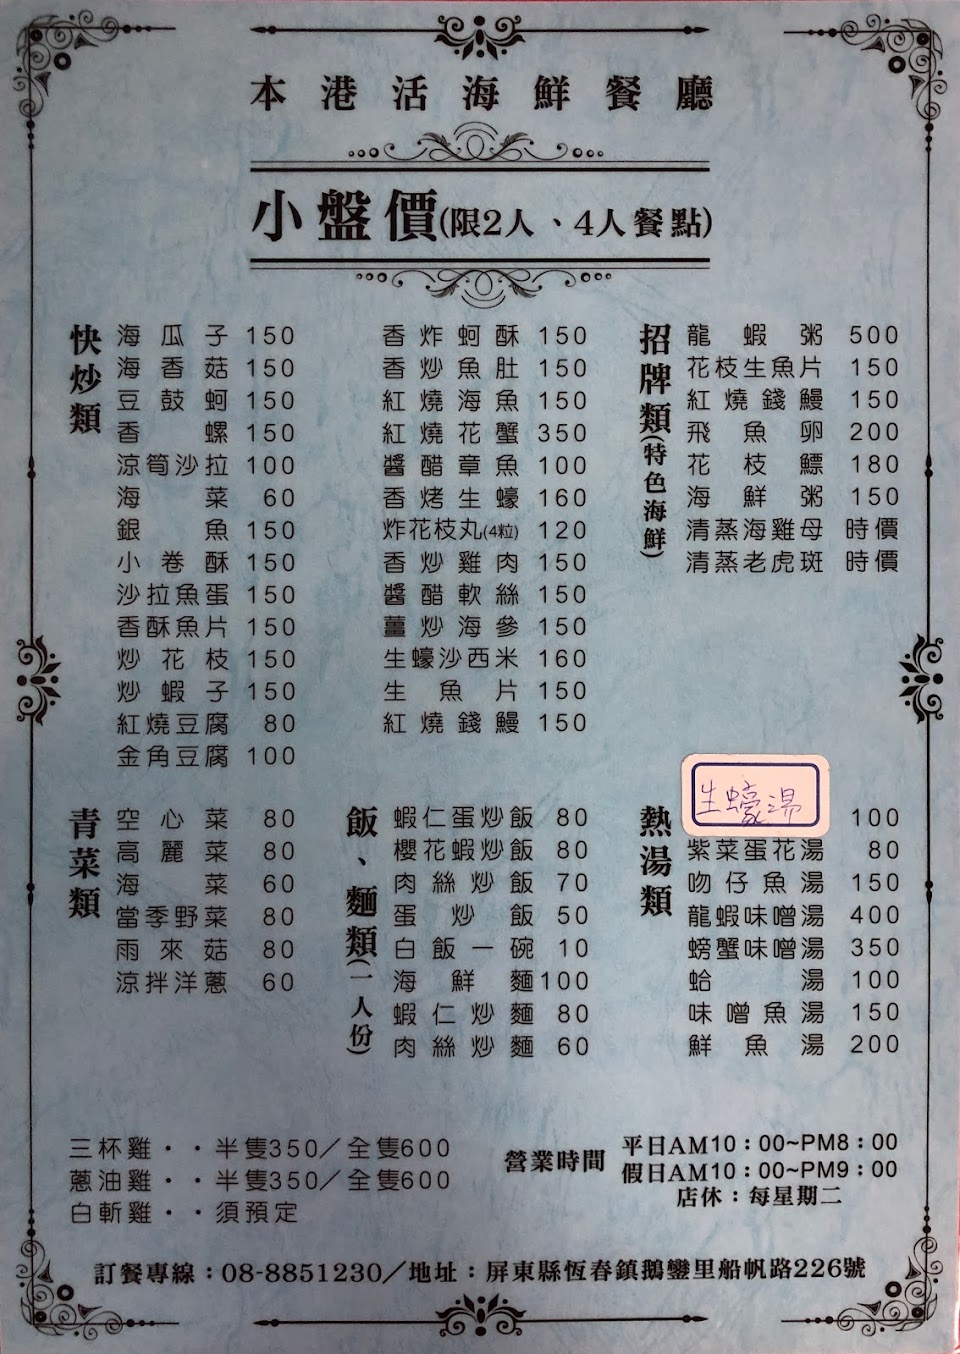 本港活海鮮餐廳
小盤價(限2人、4人餐點)
快炒類
海瓜子 150
海香菇 150
豆鼓蚵 150
香螺 150
涼筍沙拉 100
海菜 60
銀魚 150
小卷酥 150
沙拉魚蛋 150
香酥魚片 150
炒花枝 150
炒蝦子 150
紅燒豆腐 80
金角豆腐 100
香炸蚵酥 150
香炒魚肚 150
紅燒海魚 150
紅燒花蟹 350
醬醋章魚 100
香烤生蠔 160
炸花枝丸(4粒) 120
香炒雞肉 150
醬醋軟絲 150
薑炒海參 150
生蠔沙西米 160
生魚片 150
紅燒錢鰻 150
招牌類(特色海鮮)
龍蝦粥 500
花枝生魚片 150
紅燒錢鰻 150
飛魚卵 200
花枝鰾 180
海鮮粥 150
清蒸海雞母 時價
清蒸老虎斑 時價
青菜類
空心菜 80
高麗菜 80
海菜 60
當季野菜 80
雨來菇 80
涼拌洋蔥 60
飯、麵類(一人份)
蝦仁蛋炒飯 80
櫻花蝦炒飯 80
肉絲炒飯 70
蛋炒飯 50
白飯一碗 10
海鮮麵 100
蝦仁炒麵 80
肉絲炒麵 60
熱湯類
生蠔湯 100
紫菜蛋花湯 80
吻仔魚湯 150
龍蝦味噌湯 400
螃蟹味噌湯 350
蛤湯 100
味噌魚湯 150
鮮魚湯 200
三杯雞・・半隻350/全隻600
蔥油雞・・半隻350/全隻600
白斬雞・・須預定
營業時間
平日AM10：00~PM8：00
假日AM10：00~PM9：00
店休：每星期二
訂餐專線：08-8851230/地址：屏東縣恆春鎮鵝鑾里船帆路226號